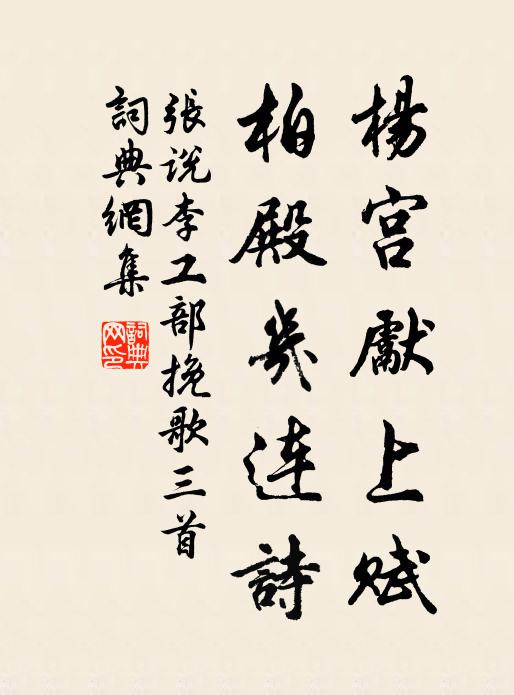 楊宮獻上赋
柏殿幾連詩
張説李工部挽歌三首
詞典網集
詞典网印